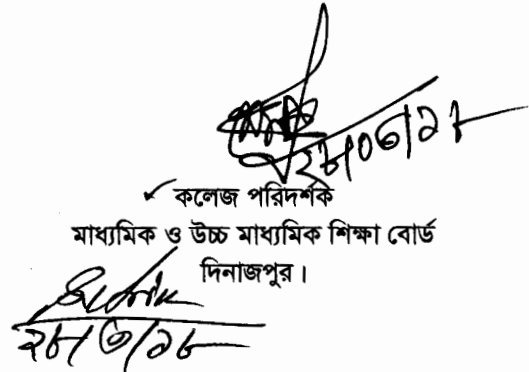 ২৮/০৩/১৮
কলেজ পরিদর্শক
মাধ্যমিক ও উচ্চ মাধ্যমিক শিক্ষা বোর্ড
দিনাজপুর।
২৮/৩/১৮